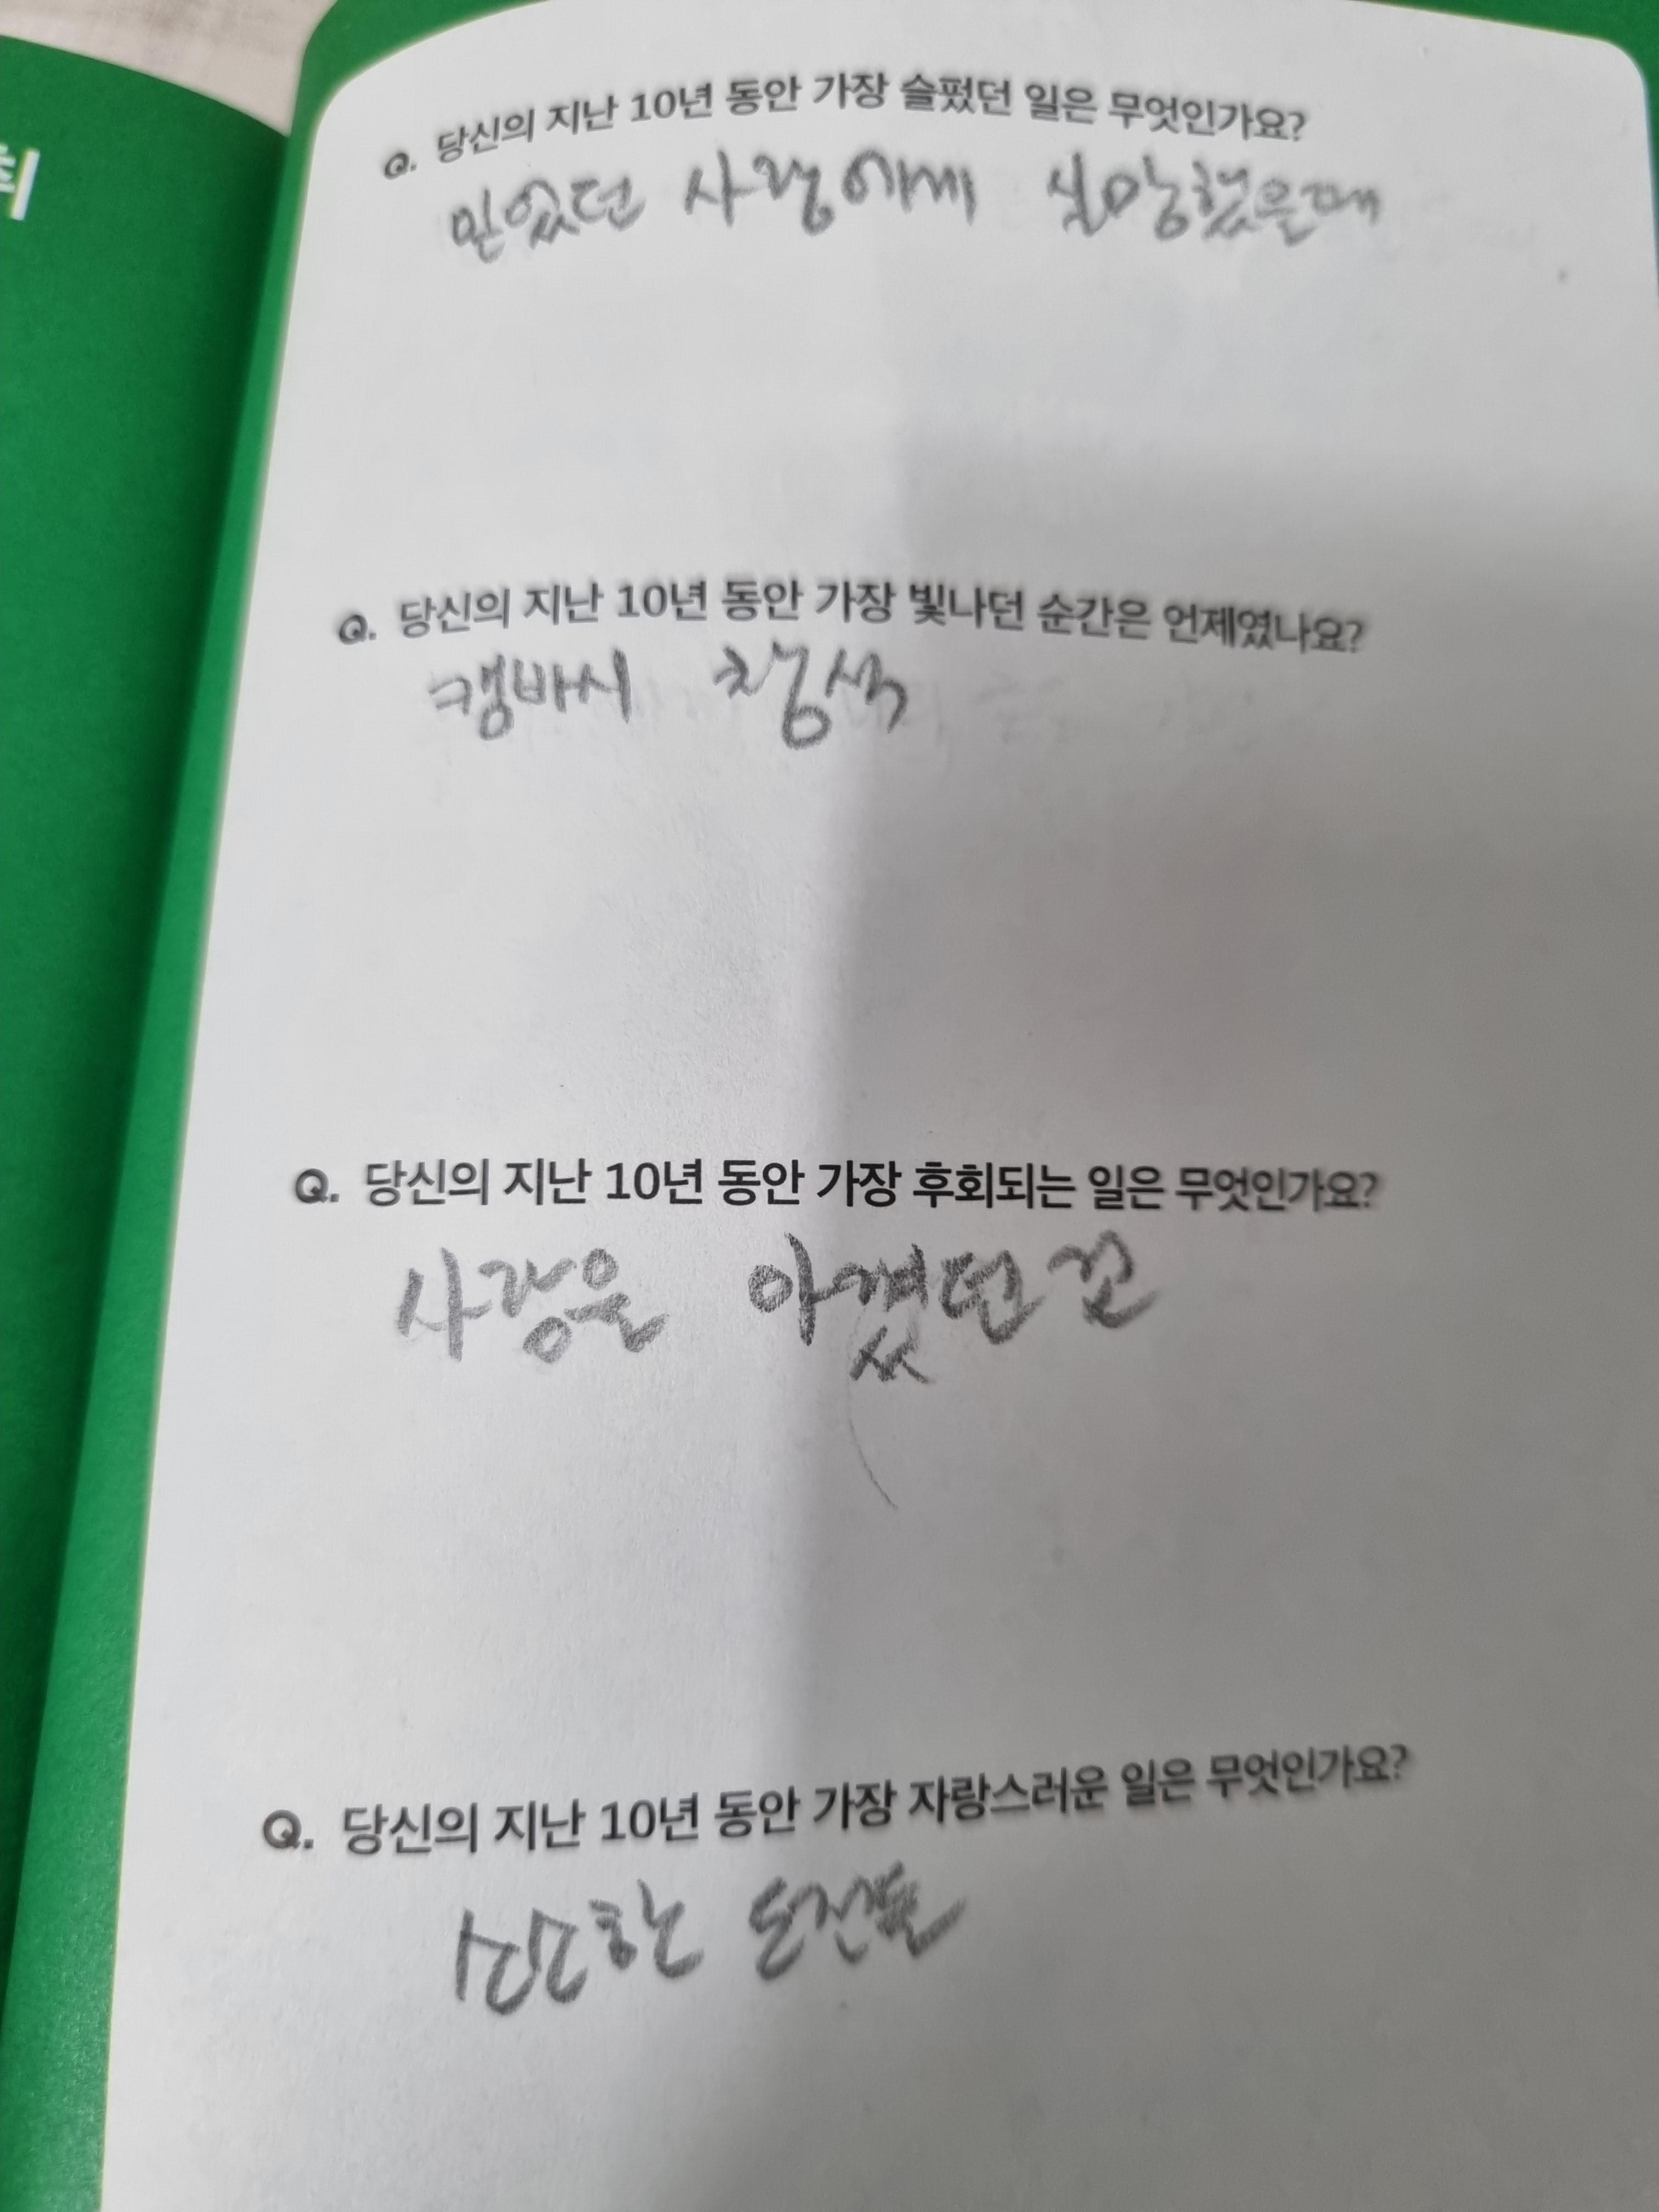 Q. 당신의 지난 10년 동안 가장 슬펐던 일은 무엇인가요?
믿었던 사랑에게 실망했을때
Q. 당신의 지난 10년 동안 가장 빛나던 순간은 언제였나요?
캠바시
Q. 당신의 지난 10년 동안 가장 후회되는 일은 무엇인가요?
사랑을 아꼈던
Q. 당신의 지난 10년 동안 가장 자랑스러운 일은 무엇인가요?